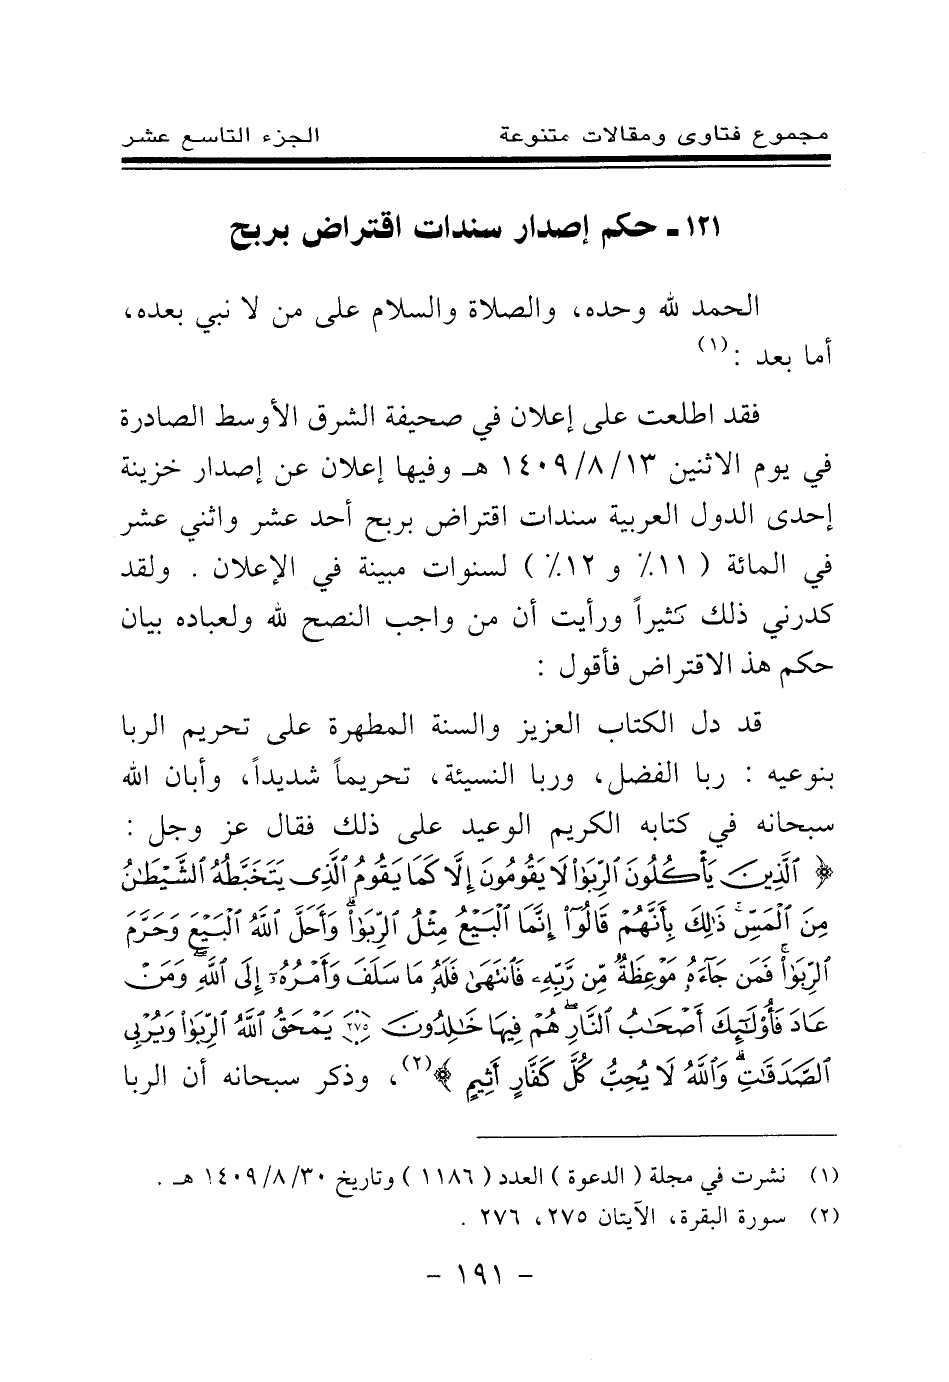 مجموع فتاوى ومقالات متنوعة الجزء التاسع عشر
١٢١ - حكم إصدار سندات اقتراض بربح
الحمد لله وحده، والصلاة والسلام على من لا نبي بعده،
أما بعد :(١)
فقد اطلعت على إعلان في صحيفة الشرق الأوسط الصادرة
في يوم الاثنين ١٤٠٩/٨/١٣ هـ وفيها إعلان عن إصدار خزينة
إحدى الدول العربية سندات اقتراض بربح أحد عشر واثني عشر
في المائة ( ١١٪ و ١٢٪ ) لسنوات مبينة في الإعلان . ولقد
كدرني ذلك كثيراً ورأيت أن من واجب النصح لله ولعباده بيان
حكم هذ الاقتراض فأقول :
قد دل الكتاب العزيز والسنة المطهرة على تحريم الربا
بنوعيه : ربا الفضل، وربا النسيئة، تحريماً شديداً، وأبان الله
سبحانه في كتابه الكريم الوعيد على ذلك فقال عز وجل :
﴿ ٱلَّذِينَ يَأْكُلُونَ ٱلرِّبَوٰا۟ لَا يَقُومُونَ إِلَّا كَمَا يَقُومُ ٱلَّذِى يَتَخَبَّطُهُ ٱلشَّيْطَٰنُ
مِنَ ٱلْمَسِّ ۚ ذَٰلِكَ بِأَنَّهُمْ قَالُوٓا۟ إِنَّمَا ٱلْبَيْعُ مِثْلُ ٱلرِّبَوٰا۟ ۗ وَأَحَلَّ ٱللَّهُ ٱلْبَيْعَ وَحَرَّمَ
ٱلرِّبَوٰا۟ ۚ فَمَن جَآءَهُۥ مَوْعِظَةٌ مِّن رَّبِّهِۦ فَٱنتَهَىٰ فَلَهُۥ مَا سَلَفَ وَأَمْرُهُۥٓ إِلَى ٱللَّهِ ۖ وَمَنْ
عَادَ فَأُو۟لَٰٓئِكَ أَصْحَٰبُ ٱلنَّارِ ۖ هُمْ فِيهَا خَٰلِدُونَ ۝٢٧٥ يَمْحَقُ ٱللَّهُ ٱلرِّبَوٰا۟ وَيُرْبِى
ٱلصَّدَقَٰتِ ۗ وَٱللَّهُ لَا يُحِبُّ كُلَّ كَفَّارٍ أَثِيمٍ ﴾(٢)، وذكر سبحانه أن الربا
(١) نشرت في مجلة ( الدعوة ) العدد ( ١١٨٦ ) وتاريخ ١٤٠٩/٨/٣٠ هـ .
(٢) سورة البقرة، الآيتان ٢٧٥، ٢٧٦ .
- ١٩١ -